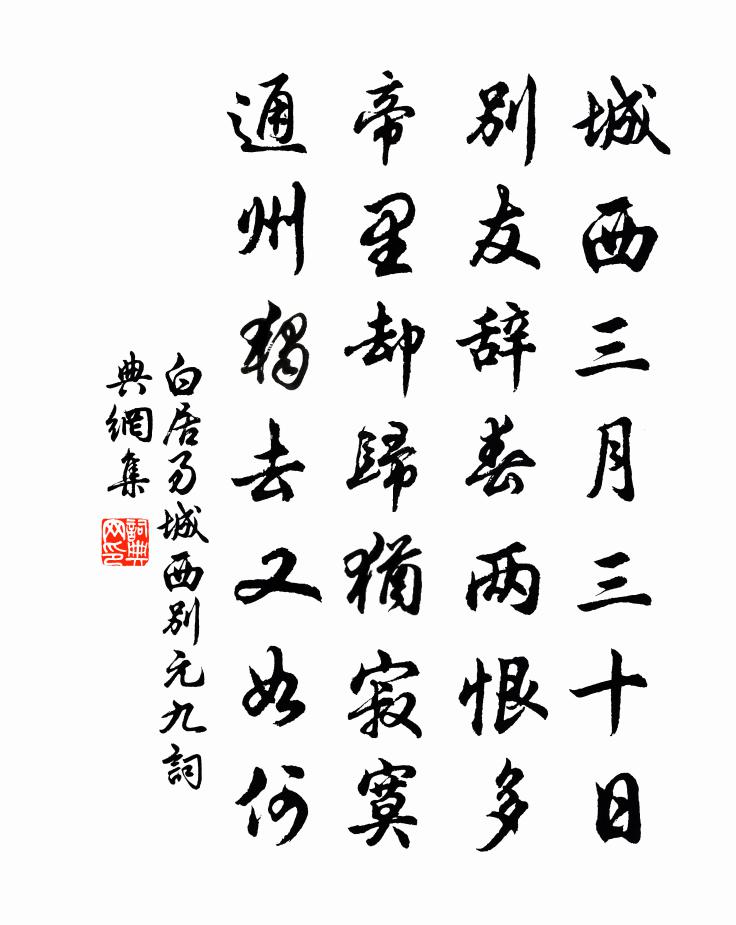 城西三月三十日
别友辞春两恨多
帝里却歸猶寂寞
通州獨去又如何
白居易城西别元九詞
典網集
詞典
网印